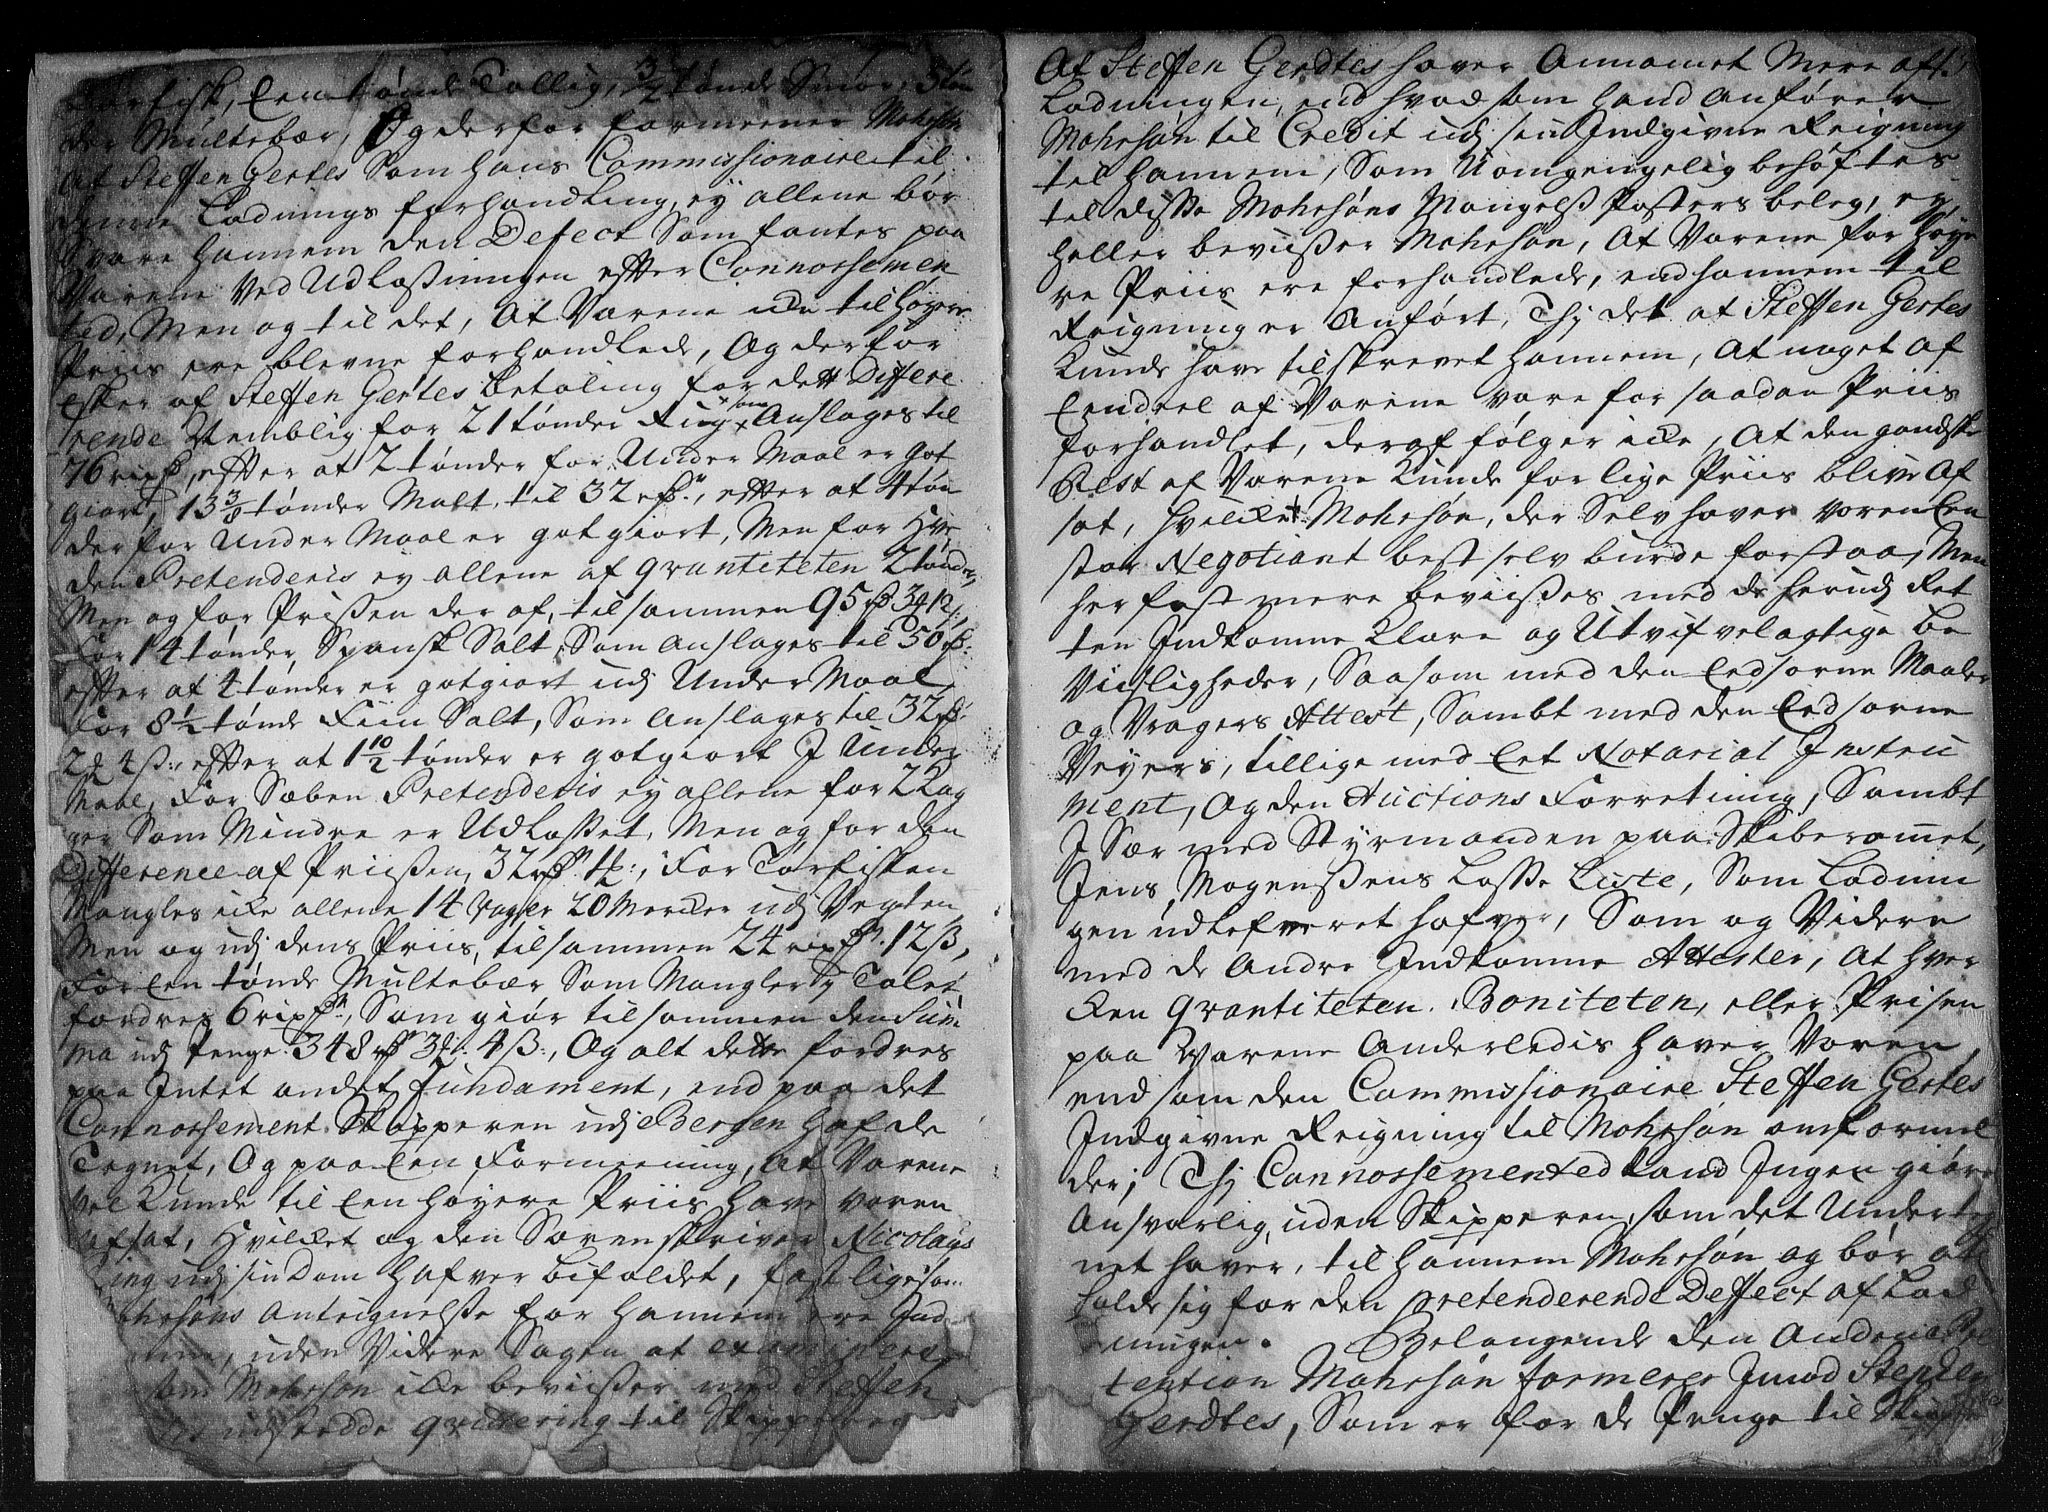 Tørfisk, Een tønde Tallig, 3/2 tønde Smør,
der Multebær, Og derfor formeener Mohrsøn
At Steffen Gertes Som hans Commissionaire til
denne Ladnings forhandling, ey allene bør
Svare hannem den Defect Som fantes paa
Varene Ved Udlosningen efter Connossemen
ted, Men og til det, At Varene icke til høyere
Priis ere blevne forhandlede, Og derfor
esker af Steffen Gertes betaling for dett Differe
rende Nemblig for 21 tønder Rug som Anslages til
76 rixd, efter at 2 tønder for Under Maal er got
giort, 13 3/8 tønder Malt til 32 rd, efter at 4 tøn
der for Under Maal er got giort, Men for Hve
den Prætenderis ey allene af qvantiteten 2 tønder,
Men og for Prissen der af, tilsammen 95 rd 3
For 14 tønder Spansk Salt, Som Anslages til 50 rd
efter at 4 tønder er gotgiort udj Under Maal
For 8 1/2 tønde Fiin Salt, Som Anslages til 32 rd
2 4 ß: efter at 1 10/2 tønder er gotgiort J Under
Maal, For Sæben Prætenderis ey allene for 2 Kag
ger Som Mindre er Udlosset, Men og for den
Difference af Priissen, 32 rd, For Tørfisken
Mangles icke allene 14 Vager 20 Mercker udj Vegten
Men og udj dens Priis, tilsammen 24 rixd 12 ß,
For Een tønde Multebær Som Mangler Talet
fordres 6 rixd, Som giør tilsammen den Sum
ma udj Penge 348 rd 3 4 ß:, Og alt dette fordres
paa Intet andet fundament, end paa det
Connossement Skipperen udj Bergen hafde
Tegnet, Og paa Een Formeening, At Varene
vel Kunde til Een høyere Priis have voren
afsat, Hvilcket og den Sorenskriver Nicolays
ing udj sin Dom Hafver bifaldet, fast ligesom
ohrsøns Antegnelsse for hannem ere Ind
uden Videre Sagen at examinere
som Mohrsøn icke beviisser med Steffen
udstædde qvittering til Skipperen
At Steffen Gerdtes haver Annamet Mere af
Ladningen, end hvad som hand Anfører
Mohrsøn til Credit udj sin Indgivne Reigning
til hannem, Som Uomgengelig behøftes
til disse Mohrsøns Mangels Posters beleg, ey
heller beviisser Mohrsøn, At Varene for høye
re Priis ere forhandlede, end hannem til
Reigning er Anført, Thj det at Steffen Gertes
Kunde have tilskrevet hannem, At noget af
Eendeel af Varene vare for saadan Priis
forhandlet, deraf følger icke, At den gandske
Rest af Varene Kunde for lige Priis blive Af
sat, hvilcket Mohrsøn, der Selv haver voren Een
stor Negotiant best selv burde forstaa, Men
her fast mere beviisses med de herudj Ret
ten Indkomne Klare og Utvifvelagtige Be
Viisligheder, Saasom med den Eedsorne Maaler
og Vragers Attest, Sambt med den Eedsorne
Veyers, tillige med Eet Notarial Instru
ment, Og den Auctions Forretning, Sambt
J Sær med Styrmanden paa Skiberommet,
Jens Mogenssens Losse Liste, Som Ladnin
gen udlefveret hafver, Som og Videre
med de Andre Indkomne Attester, At hver
cken qvantiteten, Boniteten, eller Prisen
paa Varene Anderledis haver Voren
end som den Commissionaire Steffen Gertes
Indgivne Reigning til Mohrsøn omformel
der, Thj Connossemented kand Ingen giøre
Ansvarlig, uden Skipperen, som det Underteg
net haver, til hannem Mohrsøn og bør at
holde sig for den prætenderende Deffect af Lad
ningen. Belangende den Anden Præ
tention Mohrsøn formerer Jmod Steffen
Gerdtes, Som er for de Penge til Skipper